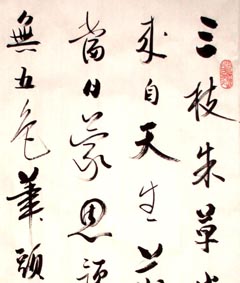 三枝朱草
自天生
當日蒙恩
無五色筆頭